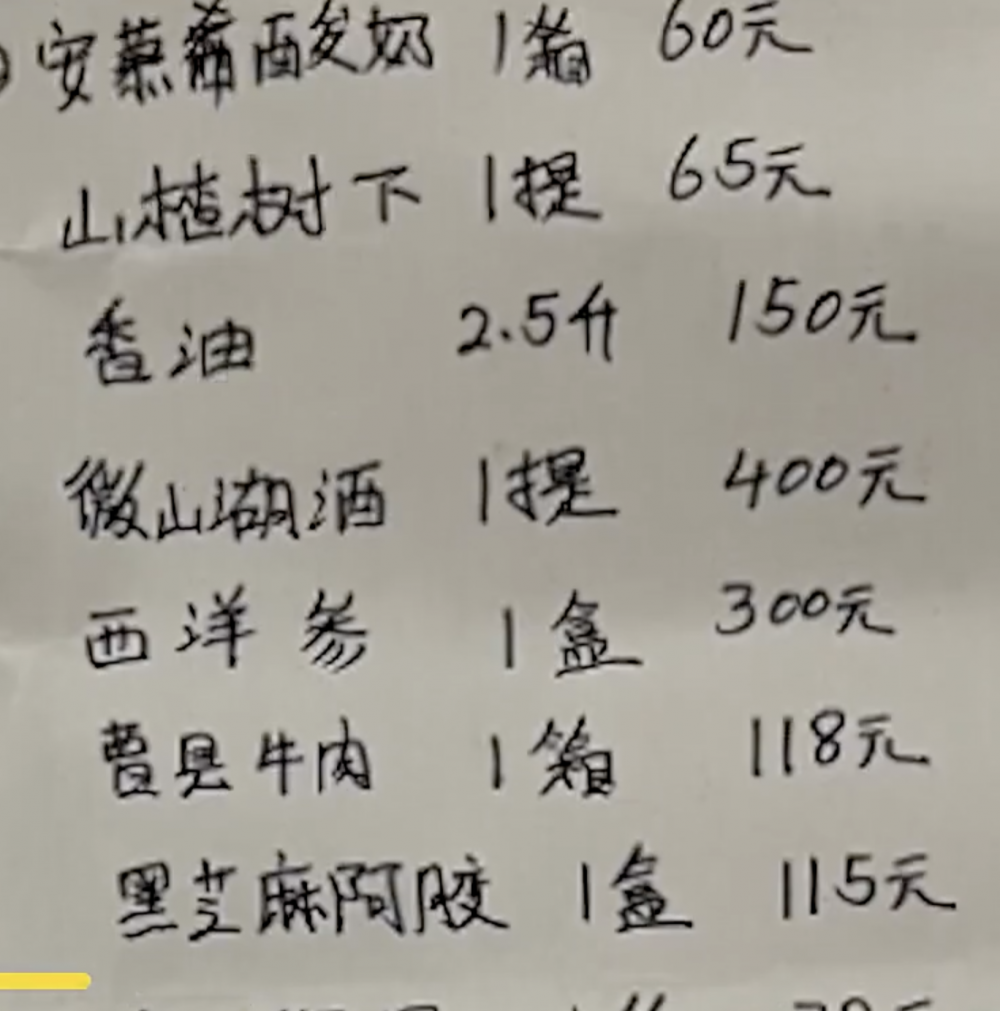 安慕希酸奶 1箱 60元
山楂树下 1提 65元
香油 2.5升 150元
微山湖酒 1提 400元
西洋参 1盒 300元
曹县牛肉 1箱 118元
黑芝麻阿胶 1盒 115元